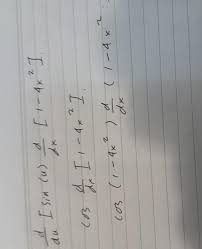 d/du [sin(u) d/dx [1-4x²].
cos d/dx [1-4x²].
cos (1-4x²) d/dx (1-4x²